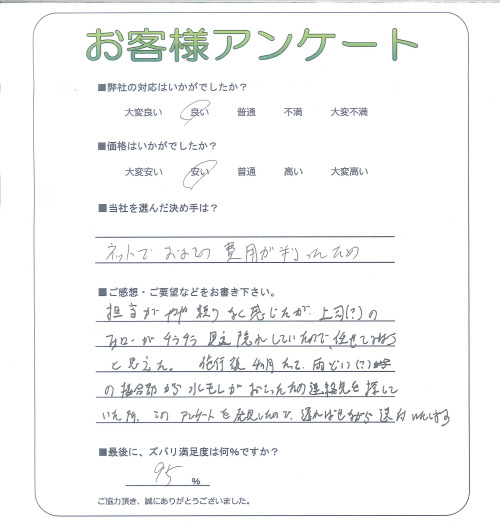 お客様アンケート
■弊社の対応はいかがでしたか？
大変良い 良い 普通 不満 大変不満
■価格はいかがでしたか？
大変安い 安い 普通 高い 大変高い
■当社を選んだ決め手は？
ネットで おおよその 費用が判ったため
■ご感想・ご要望などをお書き下さい。
担当が やや 頼りなく感じたが、上司(?)の
フォローが チラチラ 見え隠れしていたので、任せてみよう
と思えた。 施行後 4ヵ月たって、雨どい(?)
の接合部から水モレがおこったため連絡先を探して
いた所、このアンケートを発見したので、遅ればせながら送付いたします
■最後に、ズバリ満足度は何％ですか？
95 ％
ご協力頂き、誠にありがとうございました。